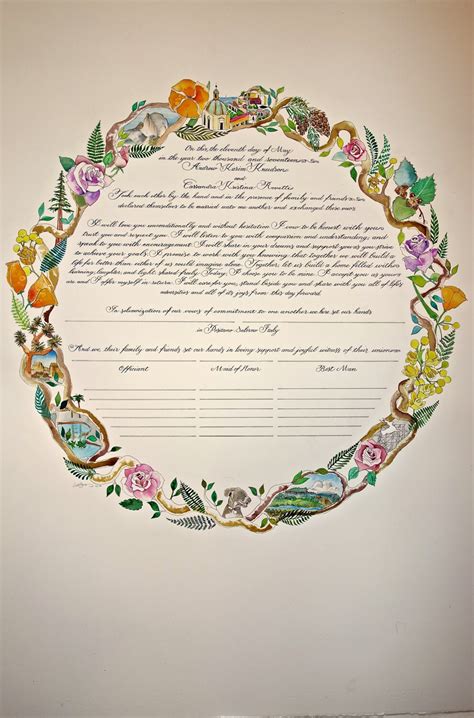 On this, the eleventh day of May
in the year two thousand and seventeen
Andrew Karim
and
Cassandra Kristina
Took each other by the hand and in the presence of family and friends
declared themselves to be married unto one another and exchanged these vows
I will love you unconditionally and without hesitation. I vow to be honest with you
trust you and respect you. I will listen to you with compassion and understanding, and
speak to you with encouragement. I will share in your dreams and support you as you strive
to achieve your goals. I promise to work with you knowing that together we will build a
life far better than either of us could imagine alone. Together, let us build a home filled with
learning, laughter, and light, shared
and offer myself in return. I will care for you, stand beside you and share with you all of life's
adversities and all of its joys from this day forward
In solemnization of our vows of commitment to one another we here set our hands
in Positano Salerno Italy
And we, their family and friends set our hands in loving support and joyful witness of their union
Officiant Maid of Honor Best Man